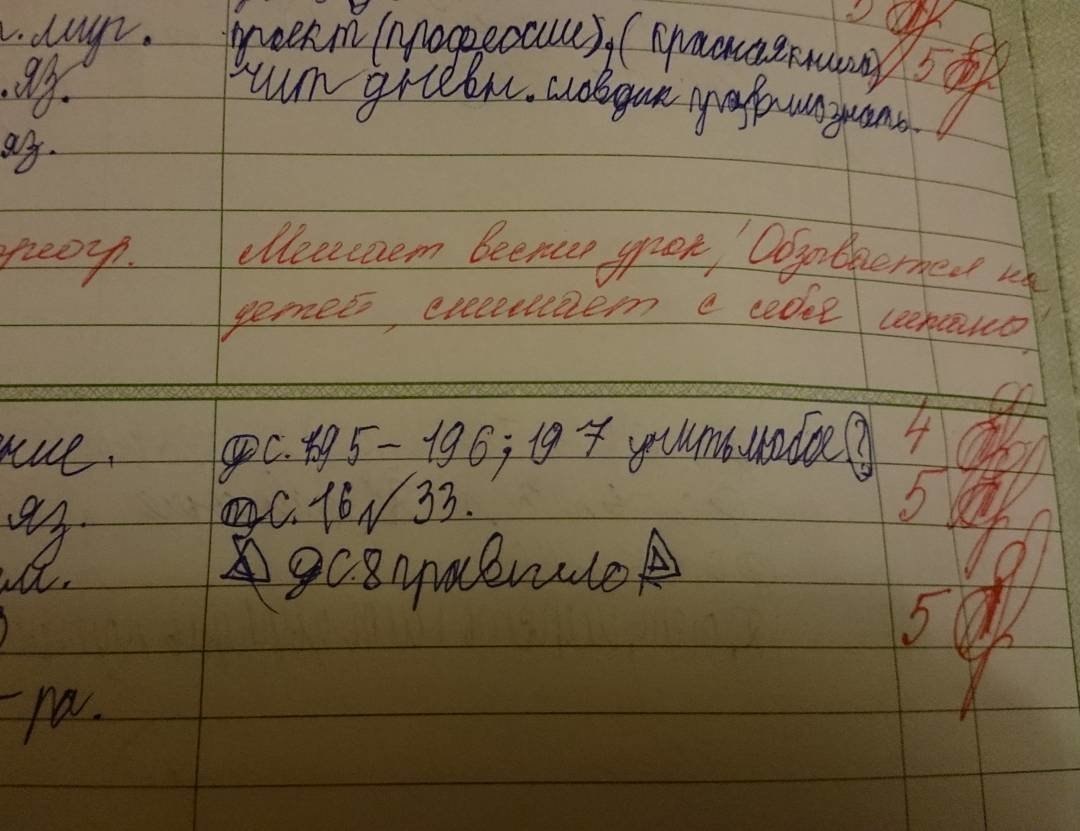 р. мир. проект (профессии), (красная книга) 5
. яз. чит дневн. словдик правило знать. 5
яз.
Мешает вести урок! Обзывается на
детей, снимает с себя штаны.
ние. д с. 195 – 196; 197 учить любое ? 4
яз. с. 16 √ 33. 5
м. д с. 8 правило
5
- ра.